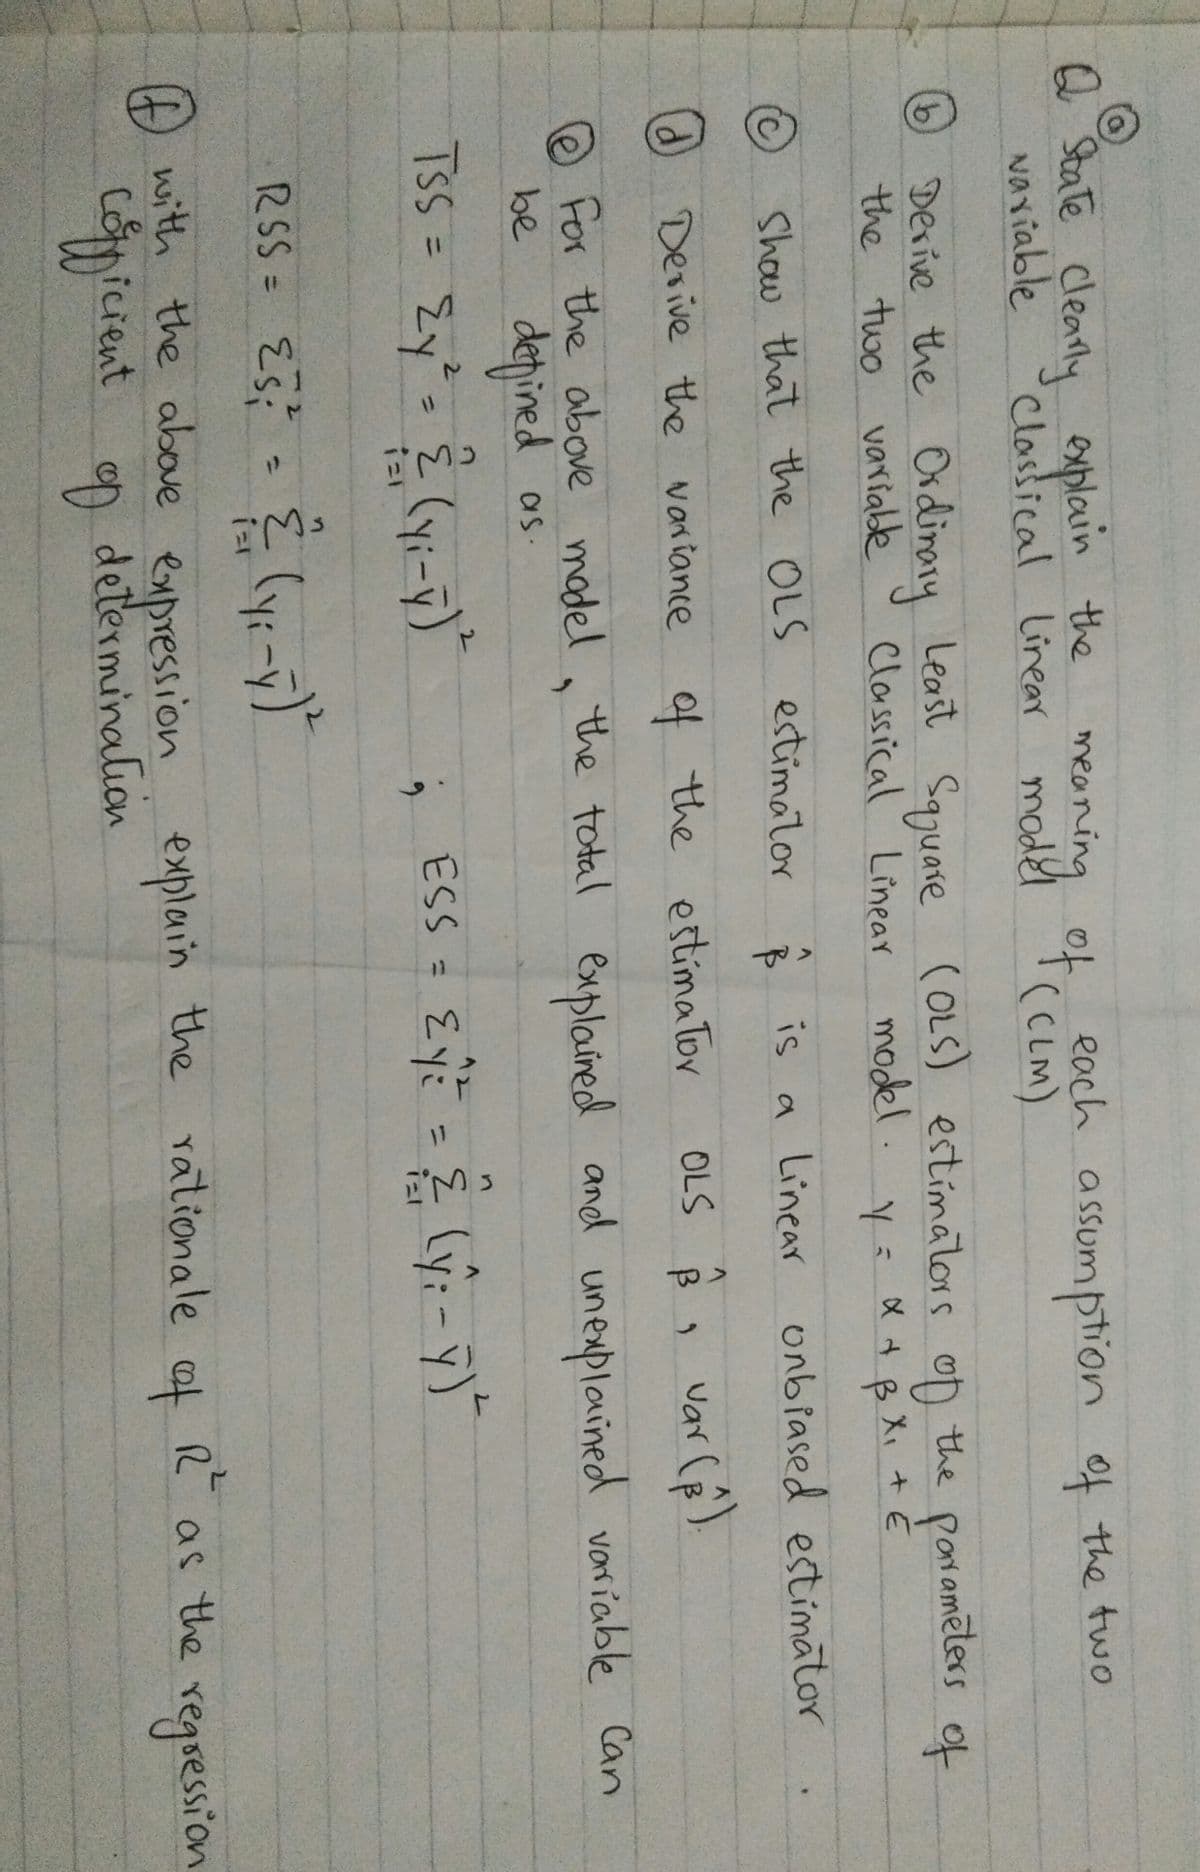 Q ⓐ State clearly explain the meaning of each assumption of the two
variable Classical Linear model (CLM)
ⓑ Derive the Ordinary Least Sqquare (OLS) estimators of the parameters of
the two variable Classical Linear model. Y = α + β X₁ + ε
ⓒ Show that the OLS estimator β̂ is a Linear onbiased estimator.
ⓓ Derive the variance of the estimator OLS β̂, var(β̂).
ⓔ For the above model, the total explained and unexplained variable Can
be defined as.
TSS = Σy² = Σⁿᵢ₌₁ (yᵢ - ȳ)² ; ESS = Σŷᵢ² = Σⁿᵢ₌₁ (ŷᵢ - ȳ)²
RSS = Σs̄ᵢ² = Σⁿᵢ₌₁ (yᵢ - ȳ)²
ⓕ with the above expression explain the rationale of R² as the regression
Coefficient of determination